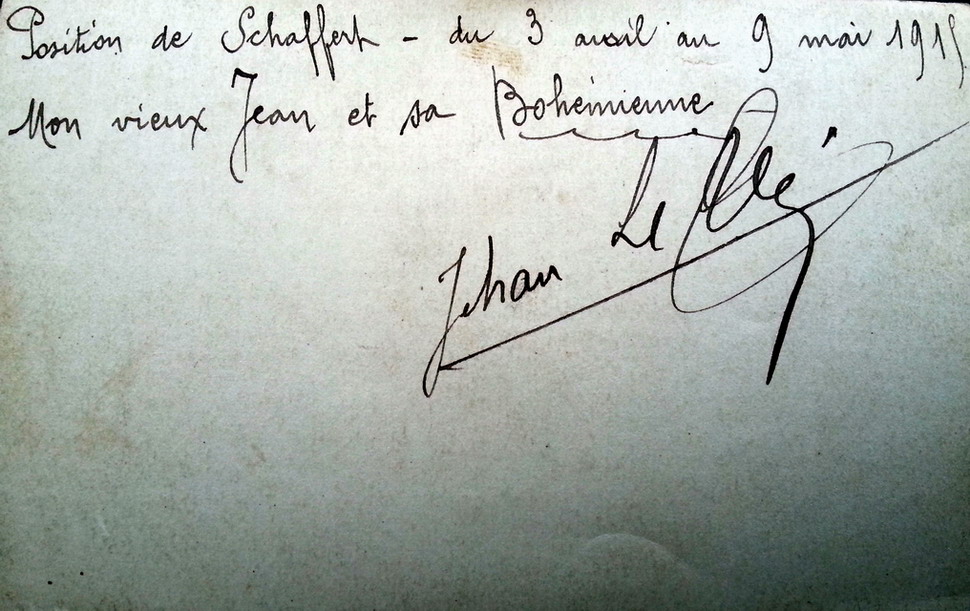 Position de Schaffert - du 3 avril au 9 mai 1915
Mon vieux Jean et sa Bohémienne
Jehan Le